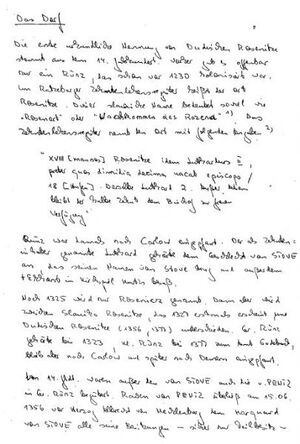 Das Dorf
Die erste urkundliche Nennung von Dutschen Rosenitze
stammt aus dem 14. Jahrhundert vorher gab es offenbar
nur ein Rünz, das schon vor 1230 kolonisiert war.
Im Ratzeburger Zehntenlehensregister heißt der Ort
Rosenitze. Dieser slawische Name bedeutet soviel wie
"Rosenort" oder "Nachkommen des Rozena" 1). Das
Zehntenlehensregister nennt den Ort mit folgenden 2)
"XVIII [mansos] Rosenitze idem Luthardus II,
preter quos dimidia decima vacat episcopo /
18 [Hufen] Derselbe Luthard 2. außer
bleibt der halbe Zehnt dem Bischof zur freien
Verfügung"
Rünz war damals nach Carlow eingepfarrt. Der als Zehnten-
inhaber genannte Luthard gehörte dem Geschlecht von STOVE
an, das seinen Namen von Stove und außerdem
im Kirchspiel besaß.
Noch 1325 wird nur Rosenitz genannt. Dann aber wird
zwischen Slavica Rosenitze, das 1327 erstmals erscheint und
Dutschen Rosenitze (1356, 1377) unterschieden. Gr. Rünz
gehörte bis 1323, Kl. Rünz bis 1377 zum Land Gadebusch,
blieb aber nach Carlow und später nach Demern eingepfarrt.
Im 14. Jhdt. waren außer den von STOVE auch die v. PENTZ
in Gr. Rünz begütert. Raven von PENTZ am 15.06.
1356 vor Herzog Albrecht von Mecklenburg dem Marquard
von STOVE alle seine